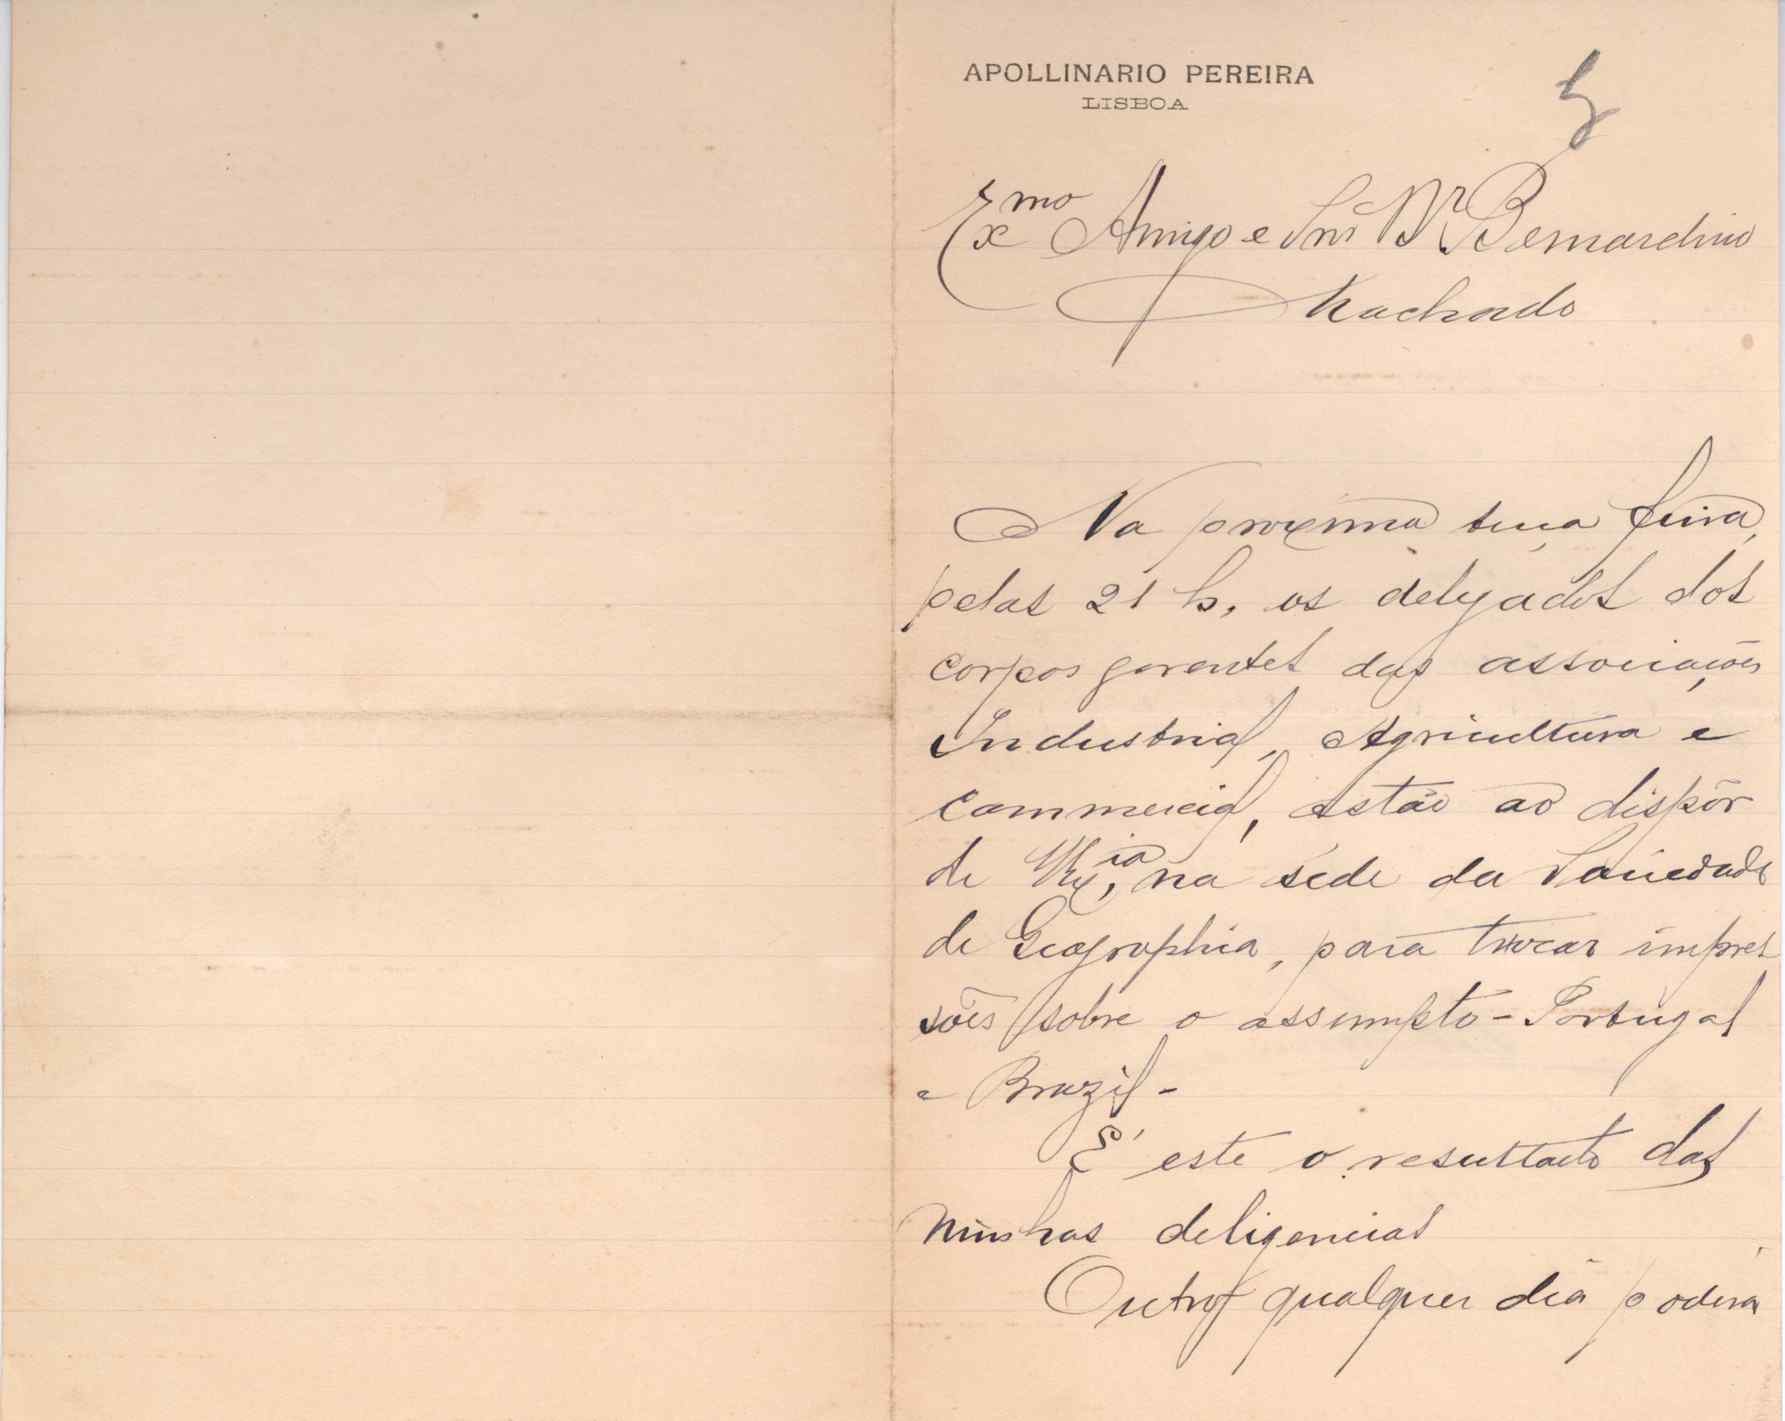 APOLLINARIO PEREIRA
LISBOA
Exmo Amigo e Snr Dr Bernardino
Machado
Na proxima terça feira,
pelas 21 h, os delegados dos
corpos gerentes das associações
Industrial, Agricultura e
Commercial, estão ao dispôr
de V Exia, na sede da Sociedade
de Geographia, para trocar impres
sões sobre o assumpto - Portugal
e Brazil -
É este o resultado das
minhas deligencias
Outro qualquer dia poderá